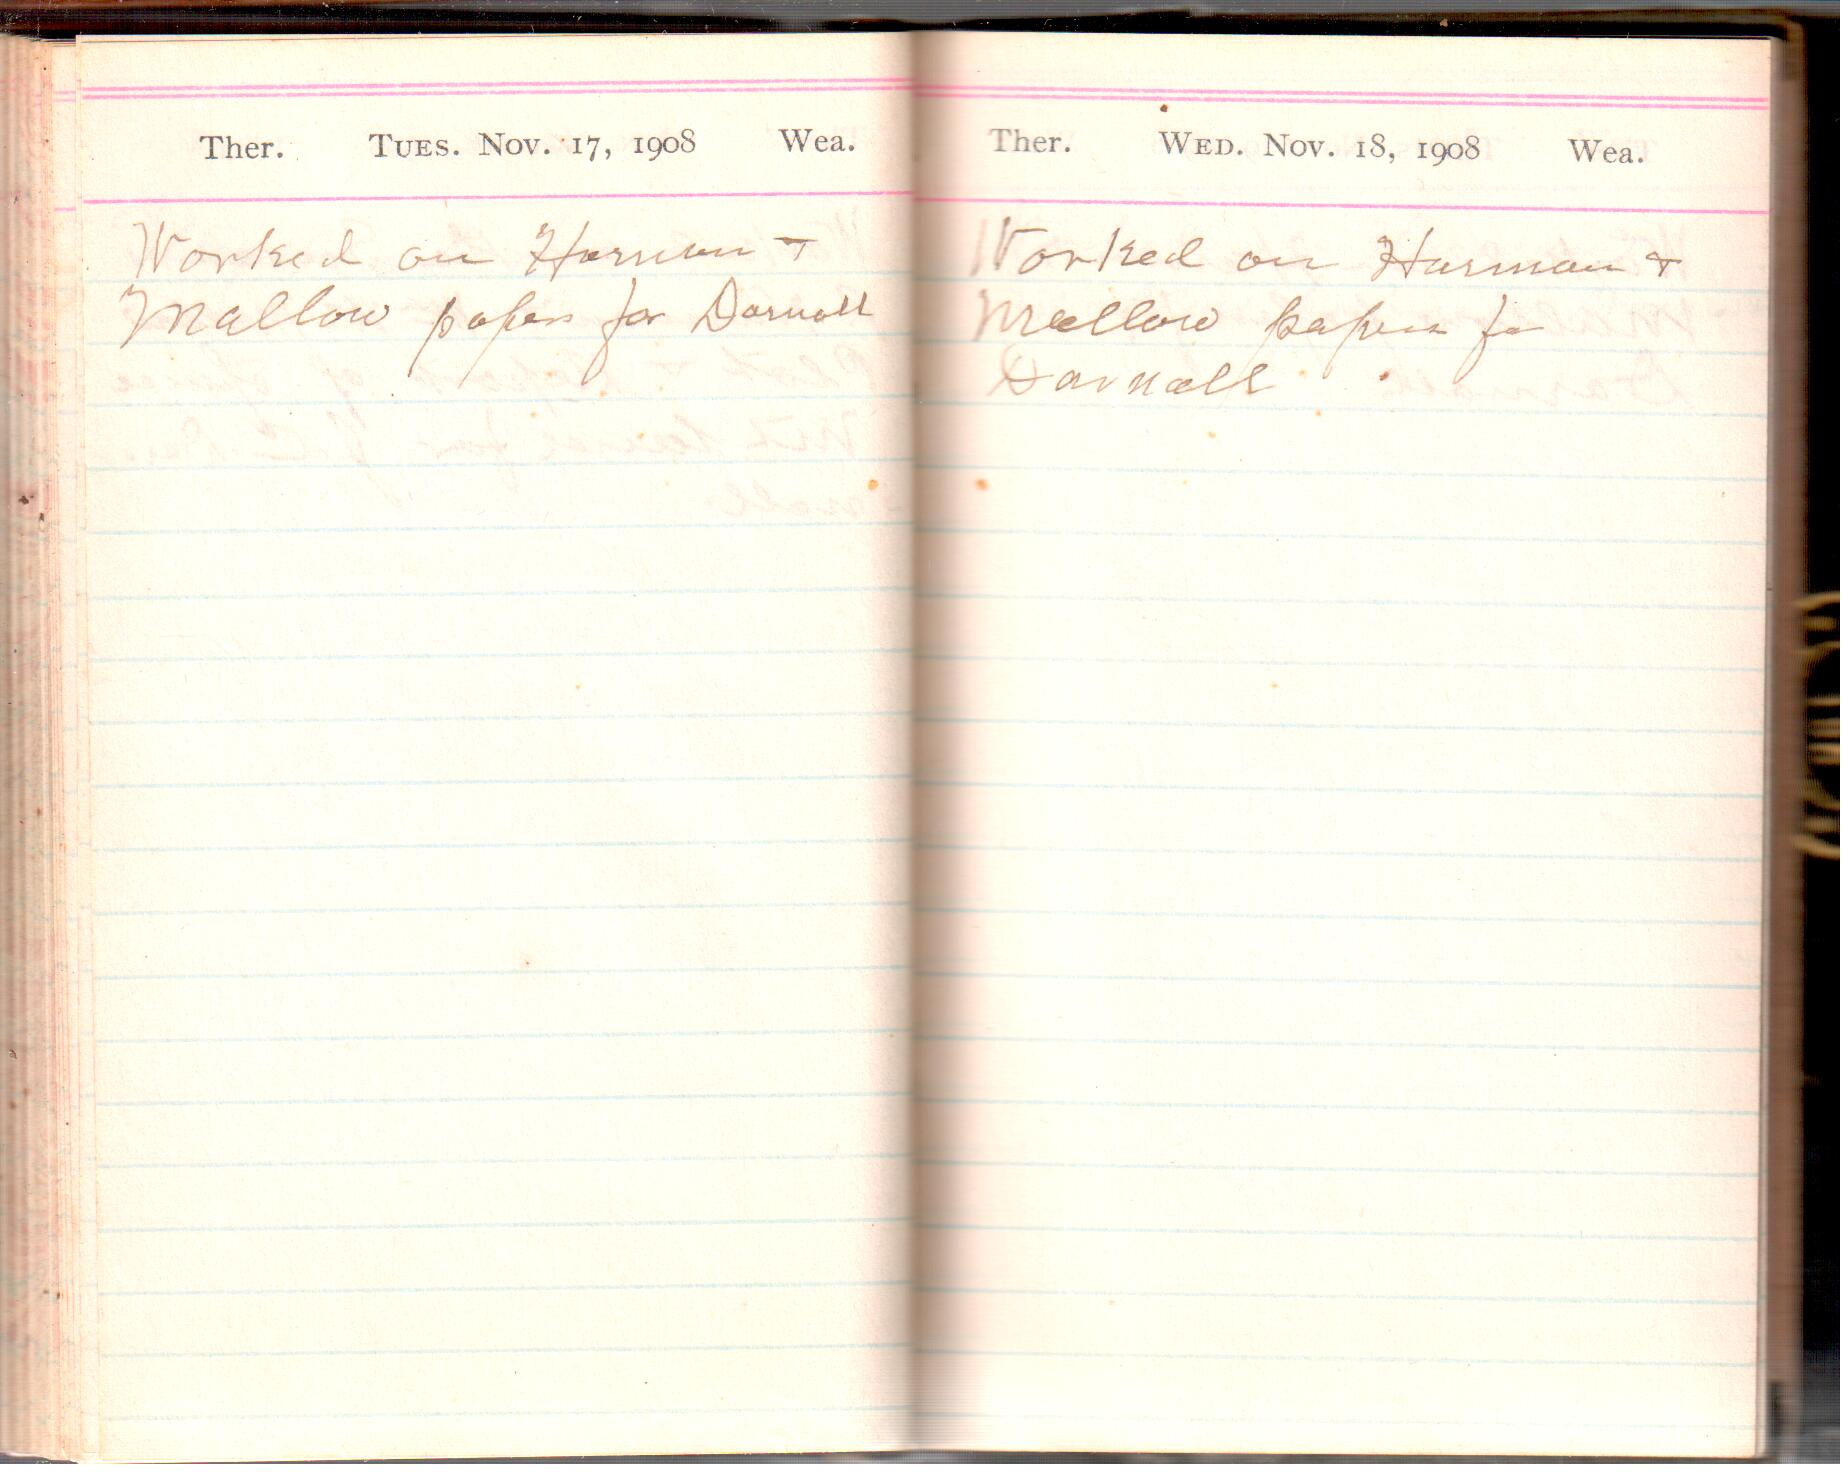 Ther. Tues. Nov. 17, 1908 Wea.
Worked on Harman +
Mallow papers for Darnall
Ther. Wed. Nov. 18, 1908 Wea.
Worked on Harman +
Mallow papers for
Darnall